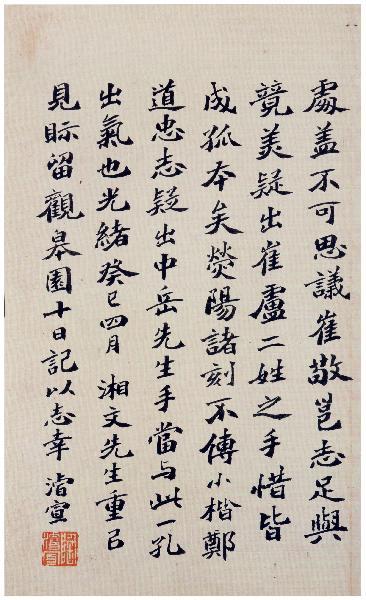 處盖不可思議崔敬邕志足與
競美疑出崔盧二姓之手惜皆
成孤本矣熒陽諸刻不傳小楷鄭
道忠志疑出中岳先生手當与此一孔
出氣也光緒癸巳四月 湘文先生重㠯
見眎留觀皋園十日記以志幸 濬宣